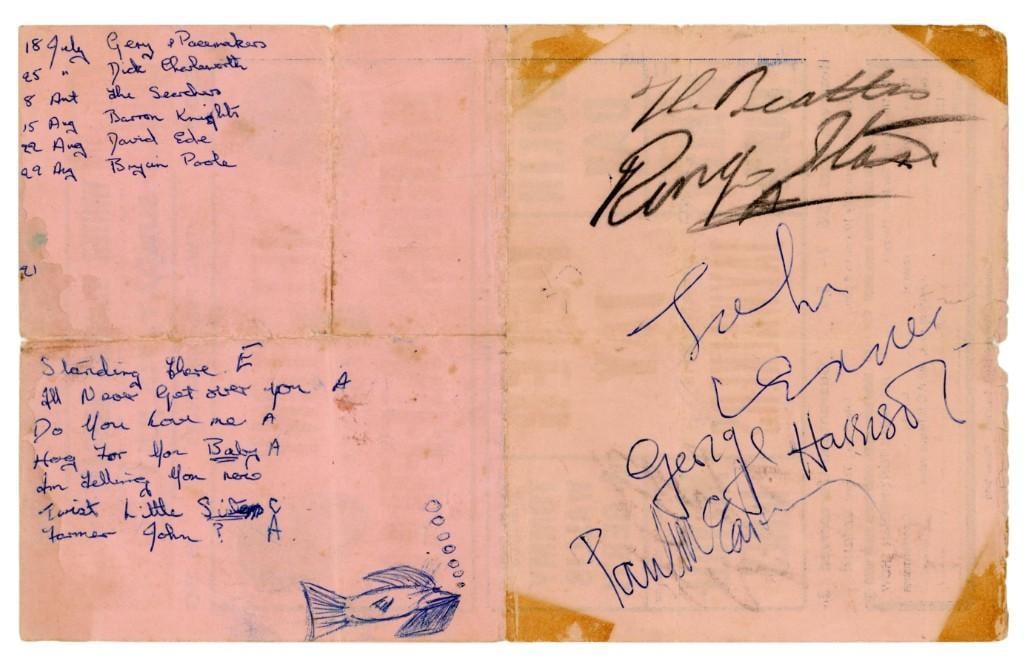 18 July Gerry & Pacemakers
25 " Dick Charlesworth
8 Aut The Searchers
15 Aug Barron Knights
22 Aug David Ede
29 Aug Bryian Poole
21
Standing There E
Ill Never Get over you A
Do You Love me A
Hog For You Baby A
Im Telling You now
Twist Little Sister C
Farmer John ? A
The Beatles
Ringo Starr
John
Lennon
George Harrison
Paul McCartney